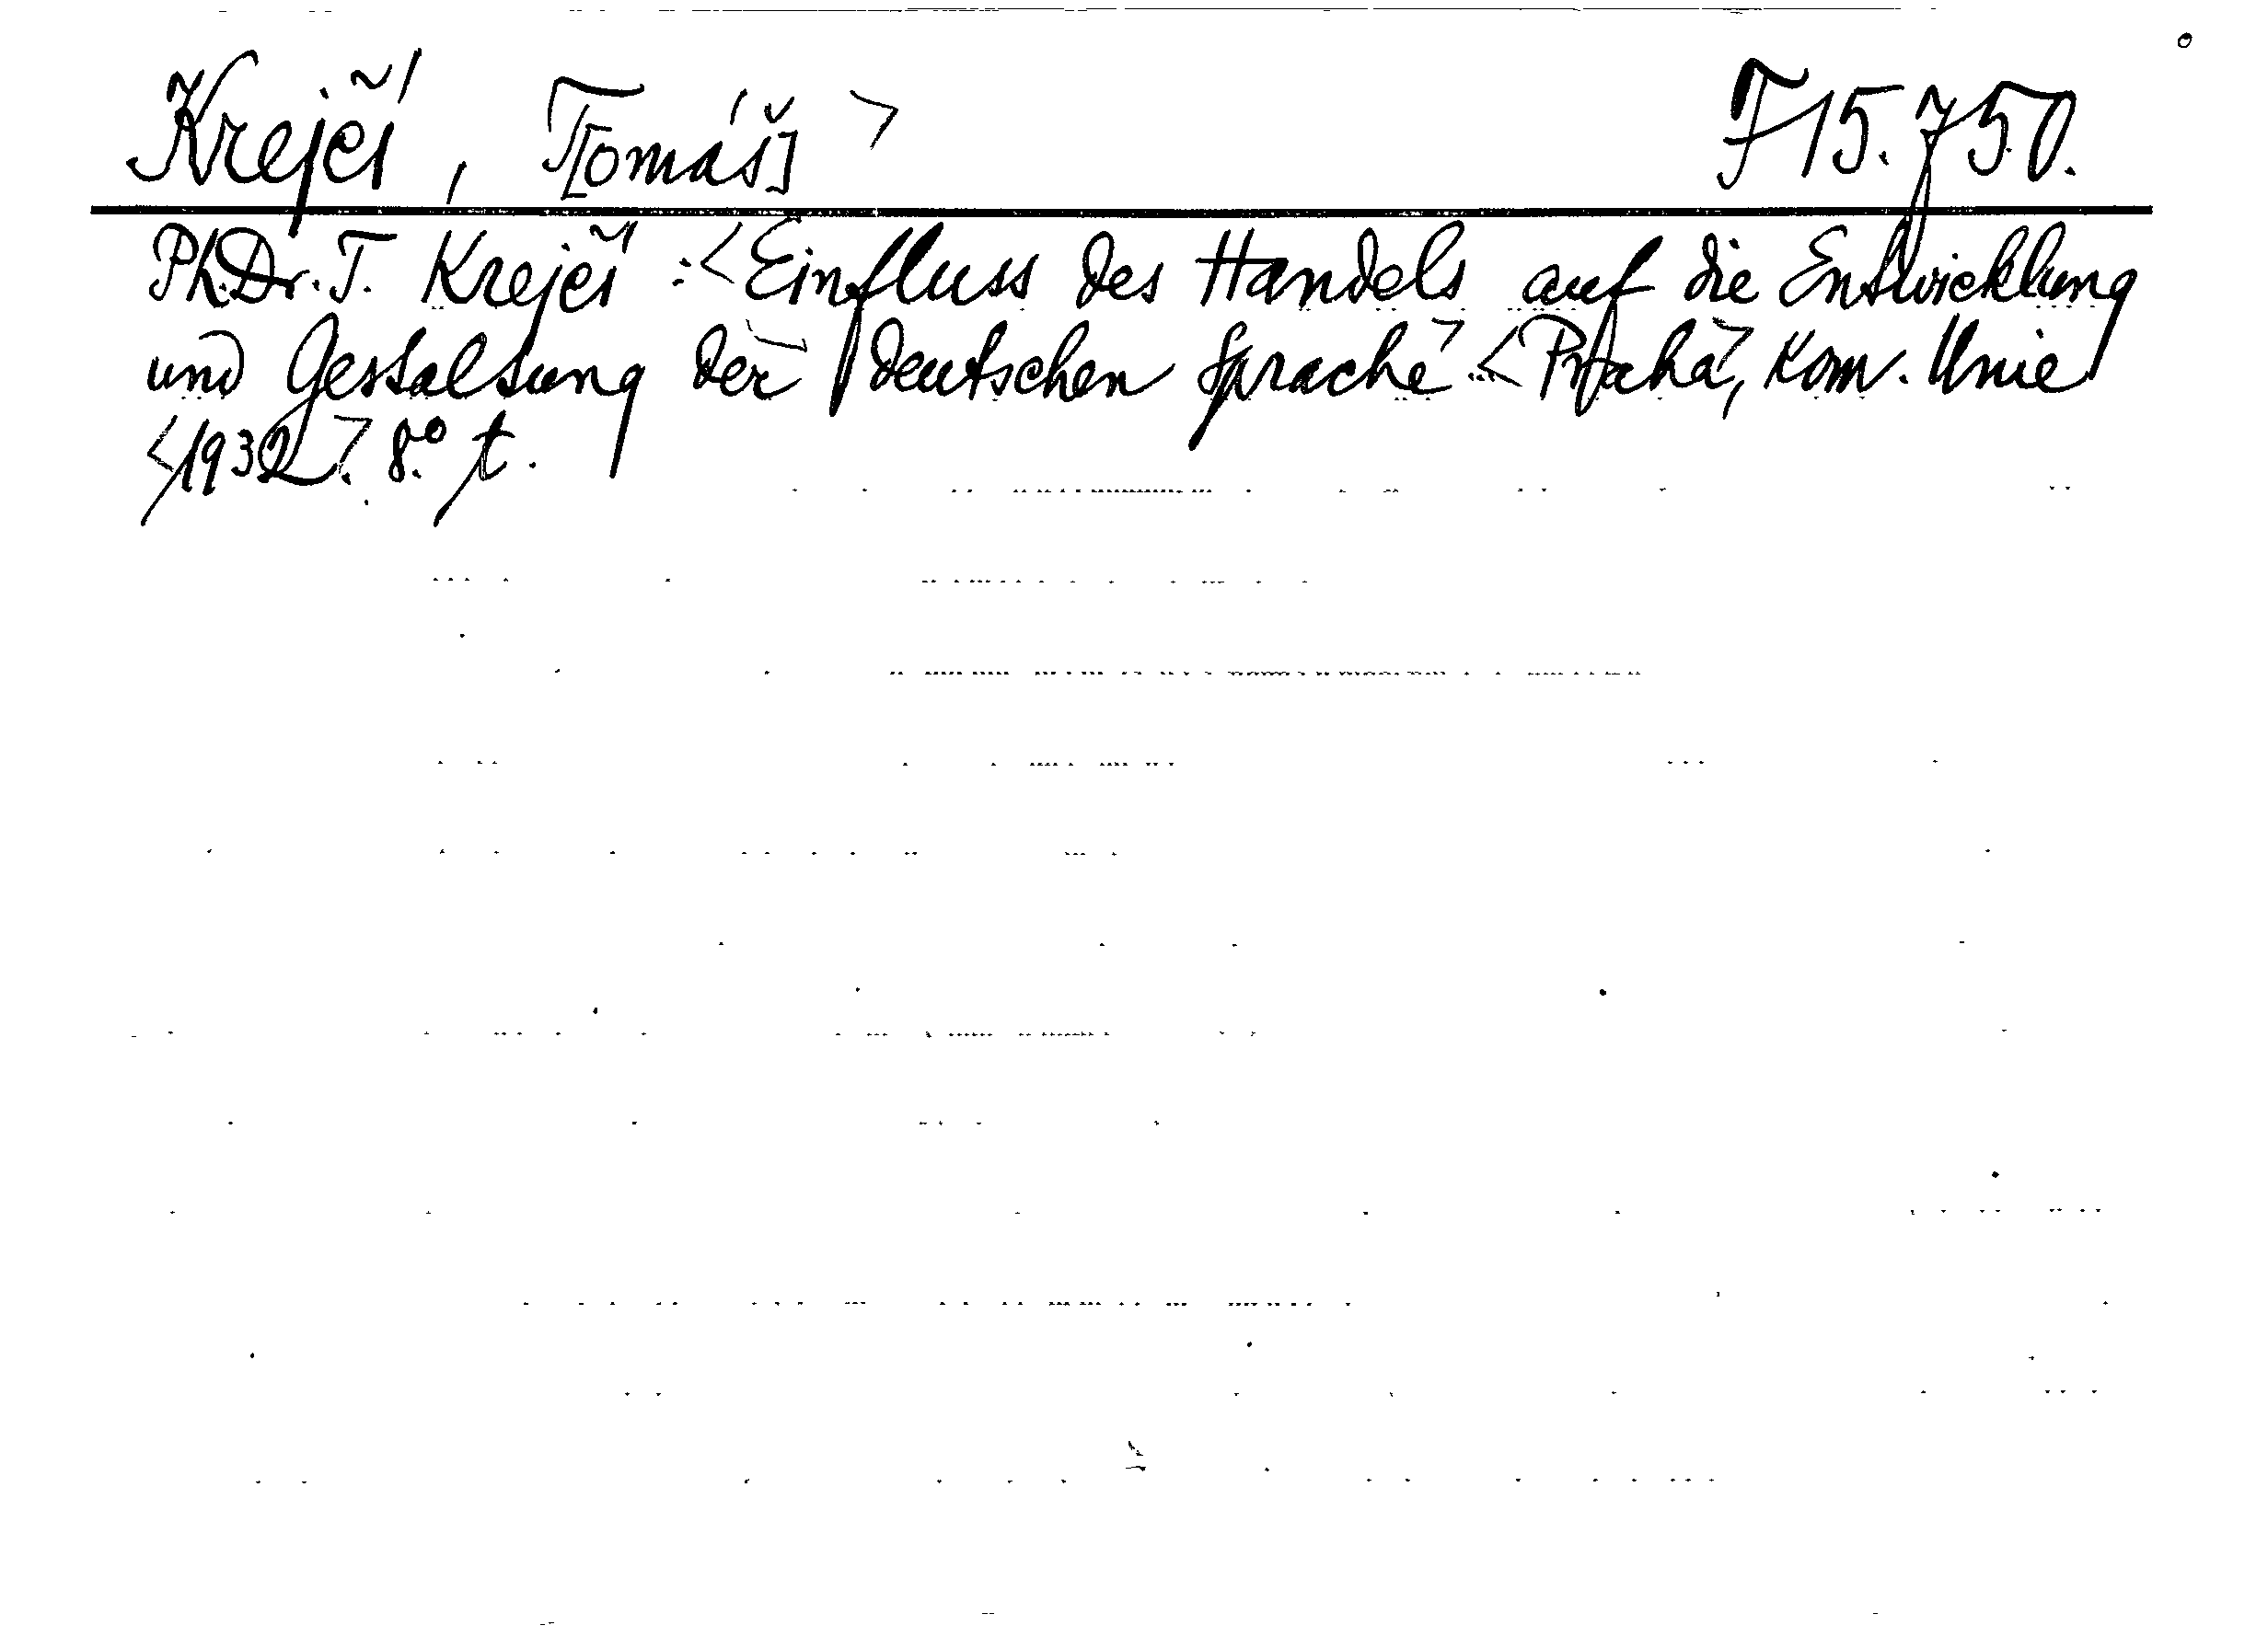 Krejčí, T[omáš] > F 15.750.
Ph.Dr. T. Krejčí: <Einfluss des Handels auf die Entwicklung
und Gestaltung der deutschen Sprache> <Praha>, Kom. Unie
<1932>. 8.° t.